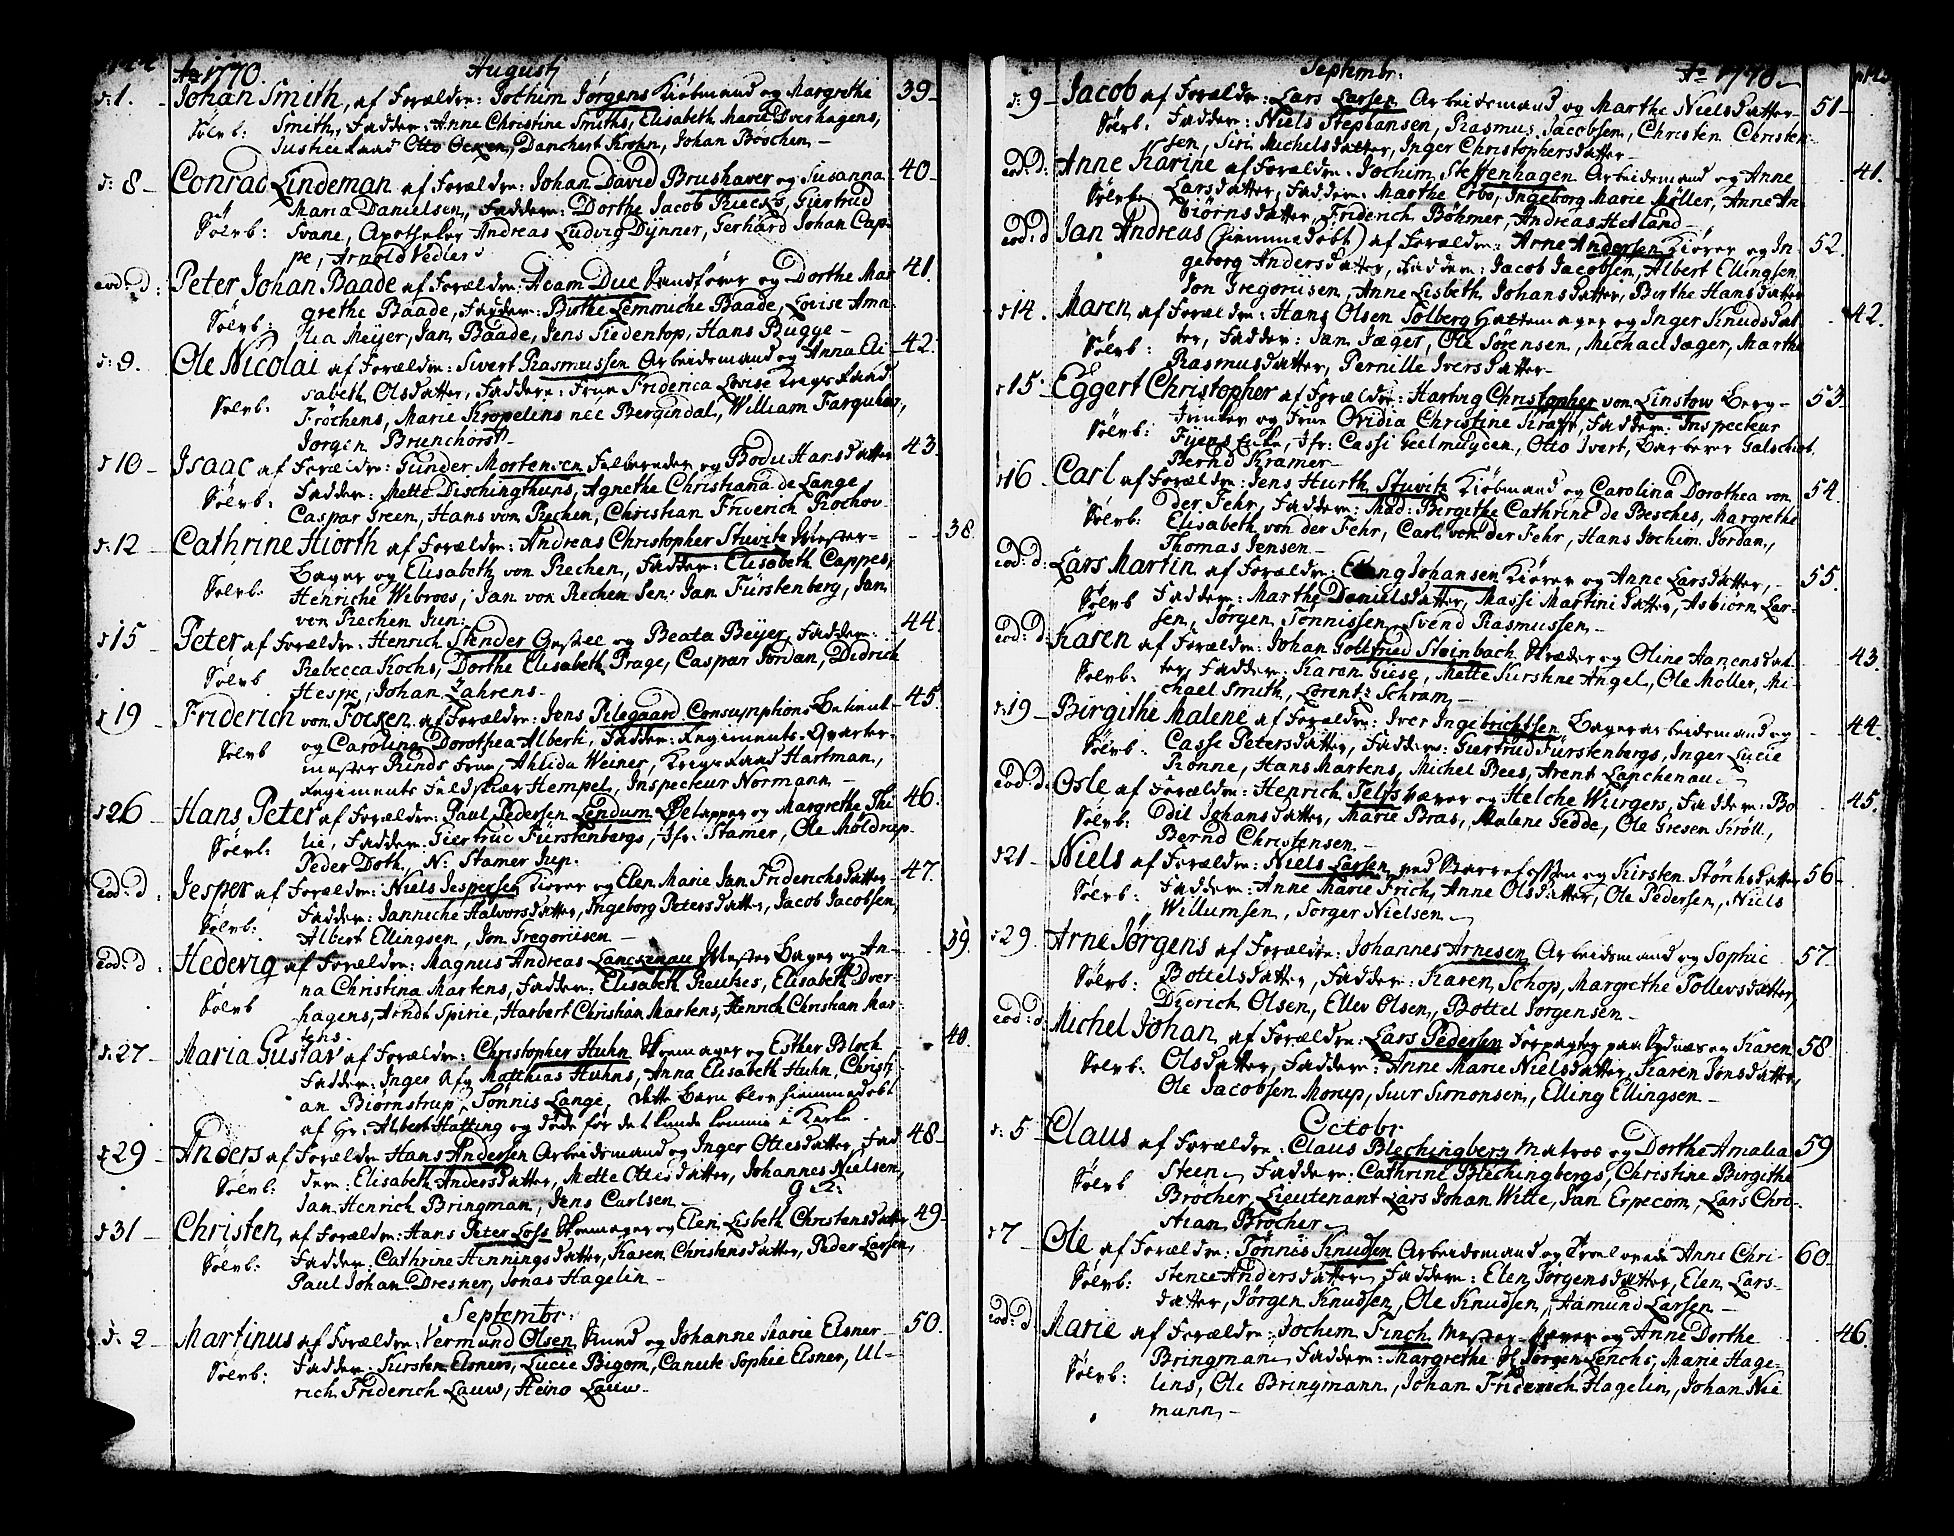 Ao 1770. Augustj
d: 1. Johan Smith, af Forældre: Jochim Jørgens Kiøbmand og Margrethe 39
Sølvb: Smith, Faddere: Anne Christine Smiths, Elisabeth Marie Dverhagens,
Justice Raad Otto Ocksen, Danchert Krohn, Johan Bröchen
d: 8 Conrad Lindeman af Forældre: Johan David Brushaver og Susanna 40
Maria Danielsen, Faddere: Dorthe Jacob Riecks, Giertrud
Sølvb: Svane, Apotheker Andreas Ludvig Dÿnner, Gerhard Johan Cap-
pe, Arnold Vedler
eod: d: Peter Johan Baade af Forældre: Adam Due Handskér og Dorthe Mar 41.
grethe Baade, Faddere: Birthe Lemmiche Baade, Lovise Ama-
Sølvb: lia Meÿer, Jan Baade, Jens Tiedentop, Hans Bugge
d: 9. Ole Nicolai af Forældre: Sivert Rasmussen Arbeidsmand og Anna Eli 42.
sabeth Olsdatter, Faddere: Frue Friderica Lovise Krigs Raad
Sølvb: Fröchens, Marie Kropelins née Bergindal, William Farquhar,
Jørgen Brunchorst
d 10 Isaac af Forældre: Gunder Mortensen Feldbereder og Bodil Hansdatter 43.
Sølvb: Faddere: Mette Dischingthuns, Agnethe Christiana de Lange
Caspar Green, Hans von Rechen, Christian Friderich Rochov
d: 12 Cathrine Hiorth af Forældre: Andreas Christopher Stuvitz Mester- 38
Bager og Elisabeth von Rechen, Faddere: Elisabeth Cappes,
Sølvb: Henriche Wibroes, Jan von Rechen Sen: Jan Fürstenberg, Jan
von Rechen Jun:
d 15 Peter af Forældre: Henrich Stender og Beata Beÿer, Faddere: 44.
Rebecca Kochs, Dorthe Elisabeth Prage, Caspar Jordan, Didrich
Sølvb Hespe, Johan Zahrens
d 19 Friderich von Focken af Forældre: Jens Pilegaard Consumptions Betient 45.
og Carolina Dorothea Alberti, Faddere: Regiments-Qvarter-
Sølvb mester Rinds Frue, Ahlida Weiner, Krigs Raad Hartman,
Regiments Feldskær Hempel, Inspecteur Normann
d 26 Hans Peter af Forældre: Paul Pedersen Lendum Øltapper og Margrethe Thi 46.
Sølvb: lie, Faddere: Giertrud Fürstenbergs, Jfr: Stamer, Ole Möldrup
Peder Doth, N: Stamer Jun.
eod: d: Jesper af Forældre: Niels Jespersen Kiører og Elen Marie Jan Friderichsdatter 47.
Faddere: Janniche Halvorsdatter, Ingeborg Petersdatter, Jacob Jacobsen,
Sølvb: Albert Ellingsen, Jon Gregoriisen
eod: d: Hedevig af Forældre: Magnus Andreas Lanckenau Mester Bager og An- 39.
na Christina Martens, Faddere: Elisabeth Reutzes, Elisabeth Dver-
Sølvb hagens, Arndt Spirie, Harbert Christian Martens, Henrich Christian Mar-
tens.
d: 27 Maria Gustav af Forældre: Christopher Huhn Skomager og Esther Bloch 40.
Faddere: Inger Matthias Huhns, Anna Elisabeth Huhn, Christi
an Biørnstrup, Tønnis Lange, dette Barn blev hiemmedøbt
af Hr: Albert Hatting og døde før det kunde komme i Kirke
d 29 Anders af Forældre Hans Andersen Arbeidsmand og Inger Ottesdatter, Fad 48
Sølvb: dere: Elisabeth Andersdatter, Mette Ottesdatter, Johannes Nielsen,
Jan Henrich Bringman, Jens Carlsen
d 31 Christen af Forældre: Hans Peter Loss Skomager og Elen Lisbeth Christensdatter 49
Sølvb: Faddere: Cathrine Henningsdatter, Karen Christensdatter, Peder Larsen,
Paul Johan Dresner, Jonas Hagelin
Septembr:
d: 2 Martinus af Forældre: Vermund Olsen Kund og Johanne Marie Elsner 50.
Sølvb: Faddere: Kirsten Elsners, Lucie Bigom, Canute Sophie Elsner, Ul-
rich Friderich Lauw, Heino Lauw
Septembr: Ao 1770
d: 9 Jacob af Forældre: Lars Larsen Arbeidsmand og Marthe Nielsdatter 51
Sølvb. Faddere: Niels Stephansen, Rasmus Jacobsen, Christen Christen
sen, Siri Michelsdatter, Inger Christophersdatter
eod: d: Anne Karine af Forældre. Jochim Steffenhagen Arbeidsmand og Anne 41.
Sølvb. Larsdatter, Faddere: Marthe Erbo, Ingeborg Marie Møller, Anne An-
biørnsdatter, Friderich Böhmer, Andreas Hetland
eod: d Jan Andreas (hiemmedøbt) af Forældre: Arne Andersen Kiører og In- 52.
geborg Andersdatter, Faddere: Jacob Jacobsen, Albert Ellingsen,
Jon Gregoriisen, Anne Lisbeth Johansdatter, Birthe Hansdatter
d 14. Maren af Forældre: Hans Olsen Solberg Hattemager og Inger Knudsdat 42.
Sølvb: ter, Faddere: Jan Jæger, Ole Sørensen, Michael Jæger, Marthe
Rasmusdatter, Pernille Iversdatter
d 15. Eggert Christopher af Forældre: Hartvig Christopher von Linstow Berg- 53
Sølvb: Junker og Frue Oridia Christine Krafft, Faddere: Inspecteur
Fyens Enke, Jfr: Cassi Geelmuyden, Otto Ivert, Barberer Galschiøt
Bernd Kramer
d 16 Carl af Forældre: Jens Hiorth Stuvitz Kiøbmand og Carolina Dorothea von 54.
Sølvb: der Fehr, Faddere: Mad: Birgithe Cathrine de Besches, Margrethe
Elisabeth von der Fehr, Carl von der Fehr, Hans Jochim Jordan,
Thomas Jensen
eod: d: Lars Martin af Forældre: Johansen Kiører og Anne Larsdatter, 55.
Sølvb Faddere: Marthe Danielsdatter, Massi Martini datter, Asbiörn Lar-
sen, Jørgen Tönnissen, Svend Rasmussen
eod: d: Karen af Forældre: Johan Gottfried Steinbach Skræder og Oline Hanensdat 43.
Sølvb: ter, Faddere: Karen Giese, Mette Kirstine Angel, Ole Møller, Mi-
chael Smith, Lorentz Schram
d: 19 Birgithe Malene af Forældre: Iver Ingebrichtsen Bager arbeidsmand og 44.
Sølvb. Casse Petersdatter, Faddere: Giertrud Fürstenbergs, Inger Lucie
Rønne, Hans Martens, Michel Bees, Arent Lanchenau
eod: d. Osle af Forældre: Henrich Selfs Væver og Helche Würgers, Faddere: Bo 45.
Sølvb: dil Johansdatter, Marie Bras, Malene Gedde, Ole Gresen Kröll,
Bernd Christensen
d 21 Niels af Forældre: Niels Larsen ved og Kirsten Størchsdatter 56
Sølvb: Faddere: Anne Marie Frich, Anne Olsdatter, Ole Pedersen, Niels
Willumsen, Torger Nielsen
d 29. Arne Jørgens af Forældre: Johannes Arnesen Arbeidsmand og Sophie 57.
Sølvb: Bottelsdatter, Faddere: Karen Schop, Margrethe Tollevsdatter,
Diderich Olsen, Ellev Olsen, Bottel Jørgensen
eod: d: Michel Johan af Forældre: Lars Pedersen Forpagter paa Sydnæs og Karen 58
Sølvb. Olsdatter, Faddere: Anne Marie Nielsdatter, Karen Jonsdatter,
Ole Jacobsen Morup, Siur Simonsen, Elling Ellingsen
Octobr
d: 5 Claus af Forældre: Claus Blechingberg Matros og Dorthe Amalia 59
Sølvb Steen, Faddere: Cathrine Blechingbergs, Christine Birgithe
Bröcher, Lieutenant Lars Johan Witte, Jan Especom, Lars Chri-
stian Bröcher
d 7 Ole af Forældre: Tönnis Knudsen Arbeidsmand og Trolovede Anne Chri- 60
Sølvb: stence Andersdatter, Faddere: Elen Jørgensdatter, Elen Lars-
datter, Jørgen Knudsen, Ole Knudsen, Aamund Larsen
eod: d Marie af Forældre: Jochem Finch Mester Væver og Anne Dorthe 46.
Sølvb: Bringman, Faddere: Margrethe Sl. Jørgen Lenchs, Marie Hage-
lins, Ole Bringmann, Johan Friderich Hagelin, Johan Nie
mann,